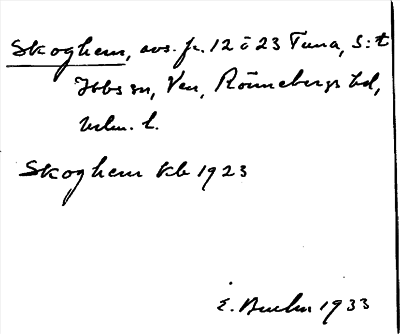 Skoghem, avs. fr. 12 o 23 Tuna, S:t
Ibbs sn, Ven, Rönnebergs hd,
Mlm. l.
Skoghem kb 1923
E. 1933